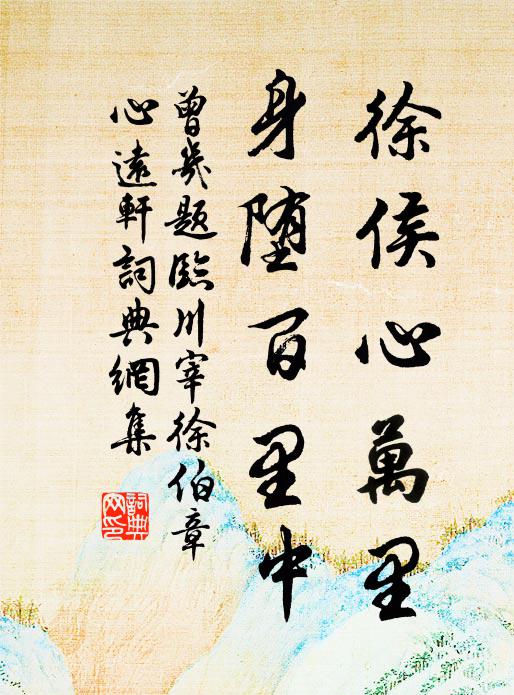 徐侯心萬里
身堕百里中
曾幾題臨川宰徐伯章
心遠軒詞典網集
詞典
网印